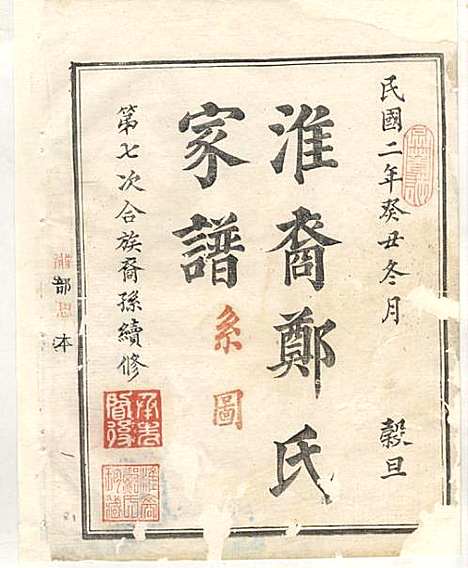 民國二年癸丑冬月 榖旦
淮裔鄭氏
家譜系圖
第七次合族裔孫續修
承先啟後
部
本